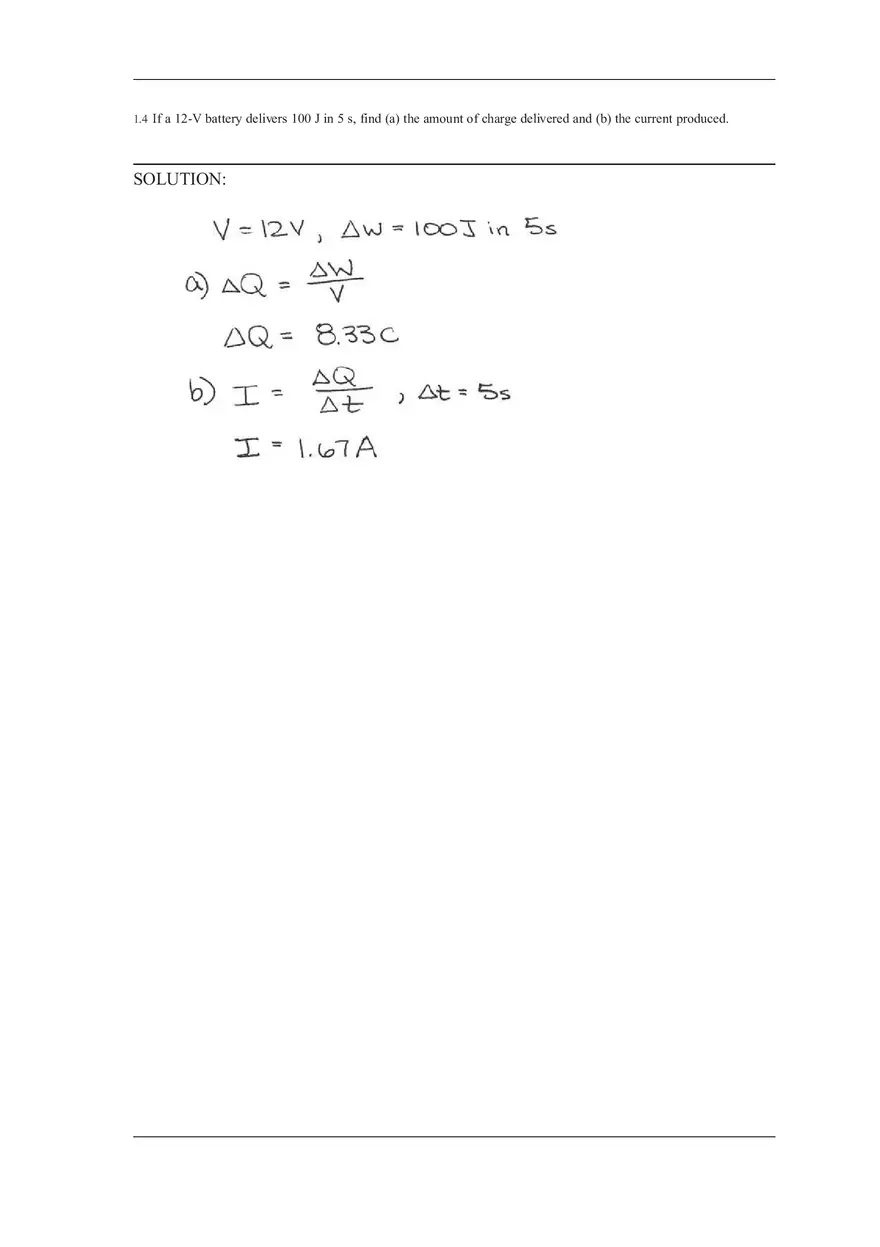 1.4 If a 12-V battery delivers 100 J in 5 s, find (a) the amount of charge delivered and (b) the current produced.
SOLUTION:
V = 12V, ΔW = 100J in 5s
a) ΔQ = ΔW/V
ΔQ = 8.33C
b) I = ΔQ/Δt, Δt = 5s
I = 1.67A